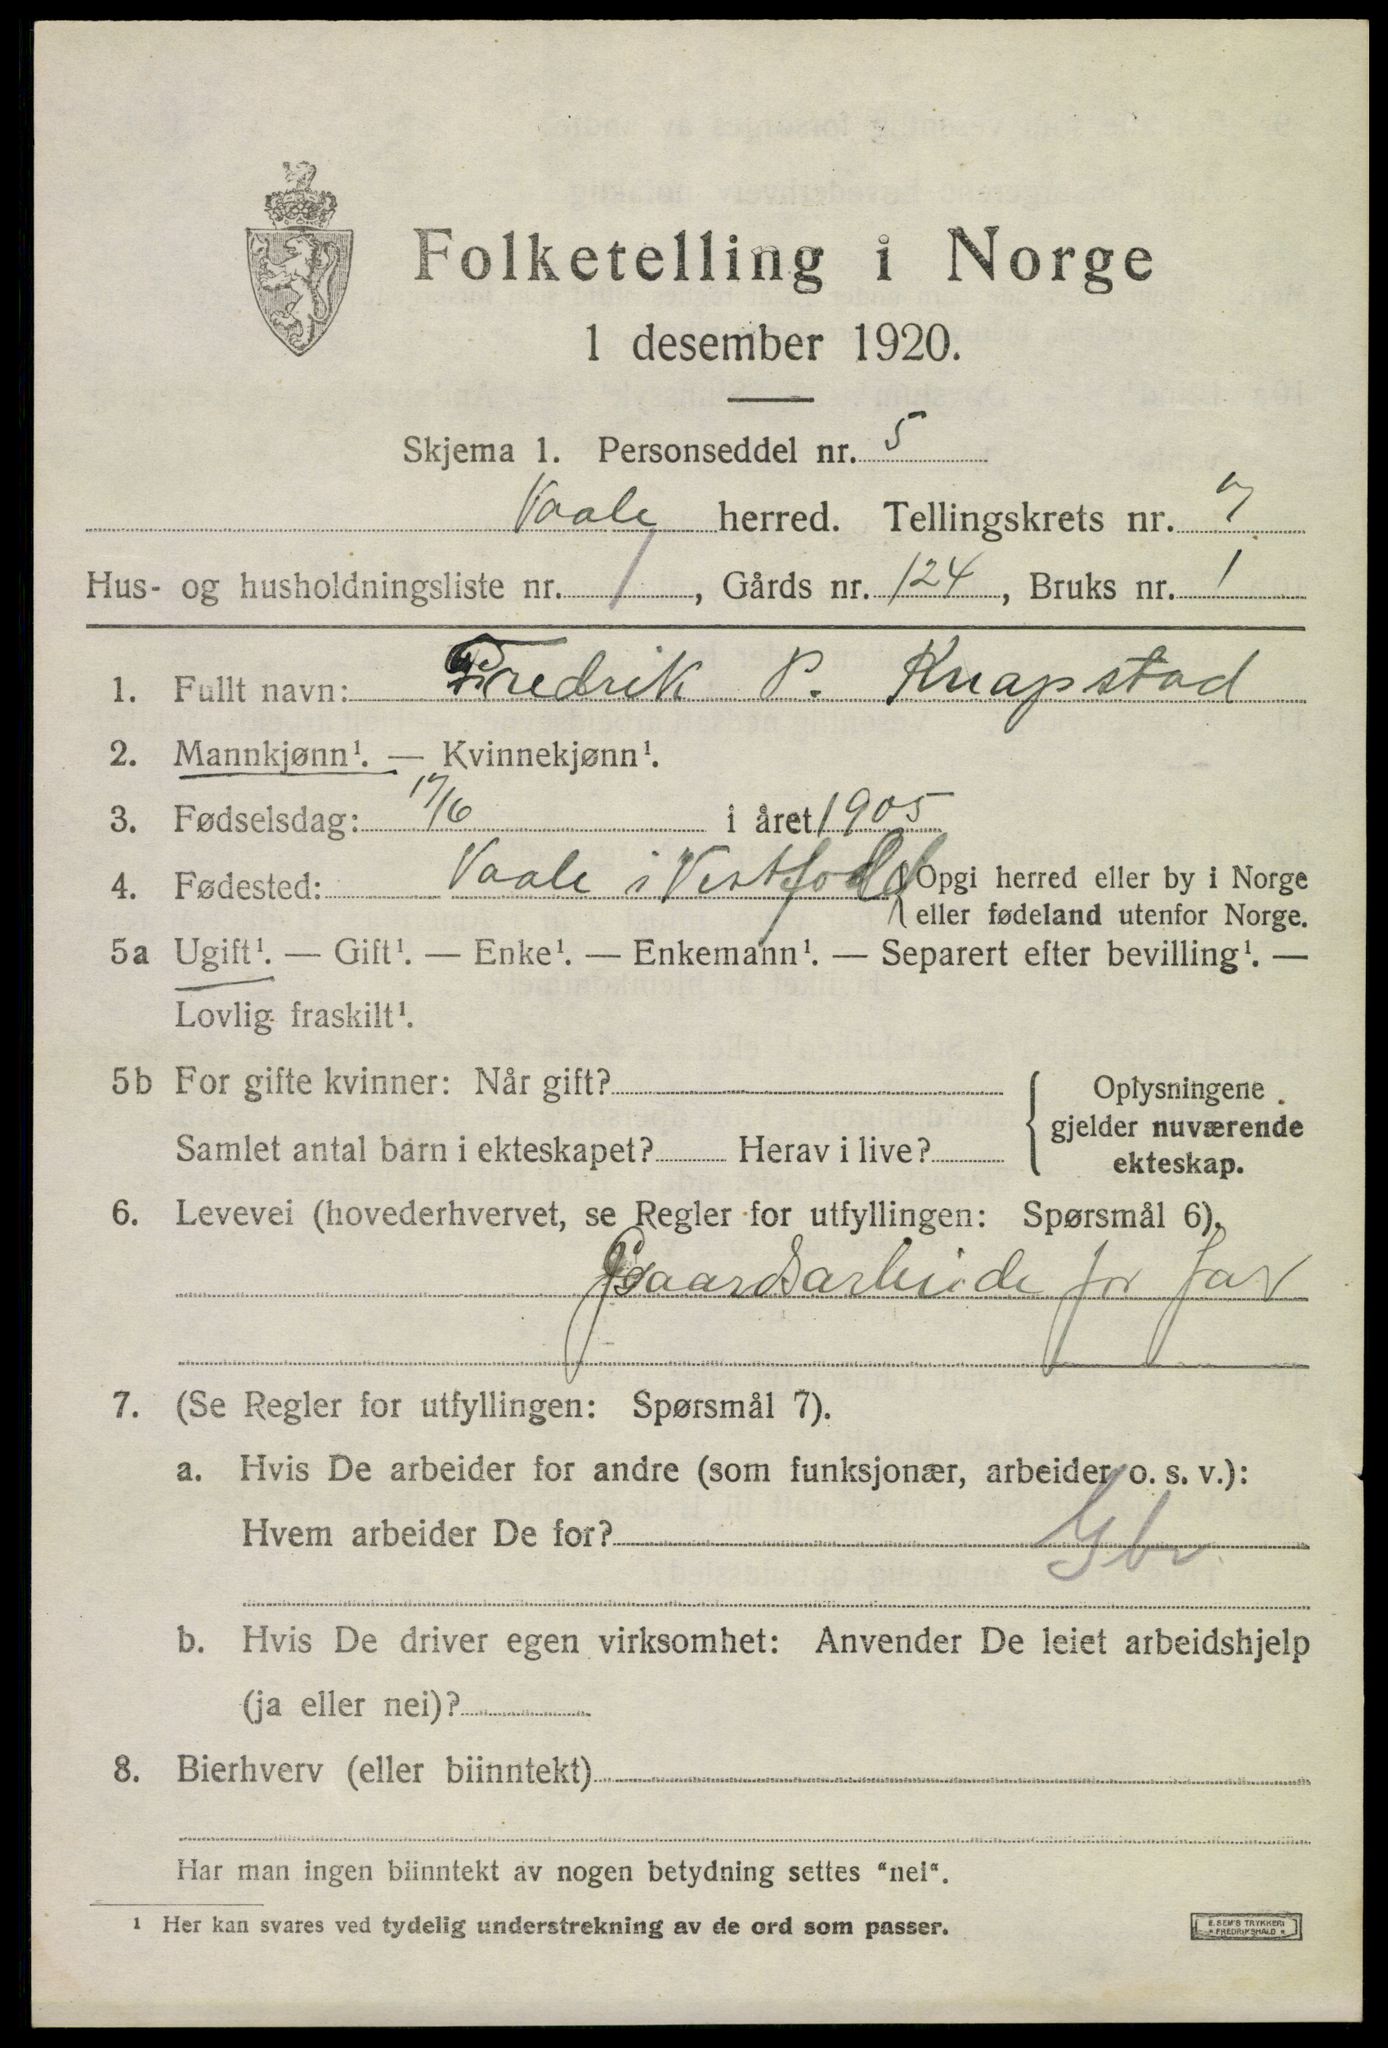 Folketelling i Norge
1 desember 1920.
Skjema 1. Personseddel nr. 5
Vaale herred. Tellingskrets nr. 7
Hus- og husholdningsliste nr. 1, Gårds nr. 124, Bruks nr. 1
1. Fullt navn: Fredrik P. Knapstad
2. Mannkjønn¹. — Kvinnekjønn¹.
3. Fødselsdag: 17/6 i året 1905
4. Fødested: Vaale i Vestfold { Opgi herred eller by i Norge
eller fødeland utenfor Norge.
5a Ugift¹. — Gift¹. — Enke¹. — Enkemann¹. — Separert efter bevilling¹. —
Lovlig fraskilt¹.
5b For gifte kvinner: Når gift?
Samlet antal barn i ekteskapet? Herav i live?
{ Oplysningene
gjelder nuværende
ekteskap.
6. Levevei (hovederhvervet, se Regler for utfyllingen: Spørsmål 6).
Gaardsarbeide for far
7. (Se Regler for utfyllingen: Spørsmål 7).
a. Hvis De arbeider for andre (som funksjonær, arbeider o. s. v.):
Hvem arbeider De for? Gbr
b. Hvis De driver egen virksomhet: Anvender De leiet arbeidshjelp
(ja eller nei)?
8. Bierhverv (eller biinntekt)
Har man ingen biinntekt av nogen betydning settes "nei".
¹ Her kan svares ved tydelig understrekning av de ord som passer.
E. SEM'S TRYKKERI
* FREDRIKSHALD *